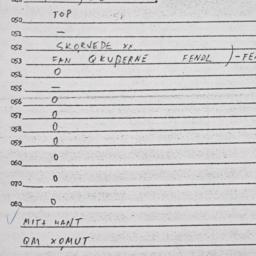 050 TOP
051 —
052 SKORVEDE xx
053 FAN QKUBERNE FENDL )-FE
054 O
055 —
056 O
057 O
058 O
059 O
060 O
070 O
080 O
MITA WANT
QM XOMUT